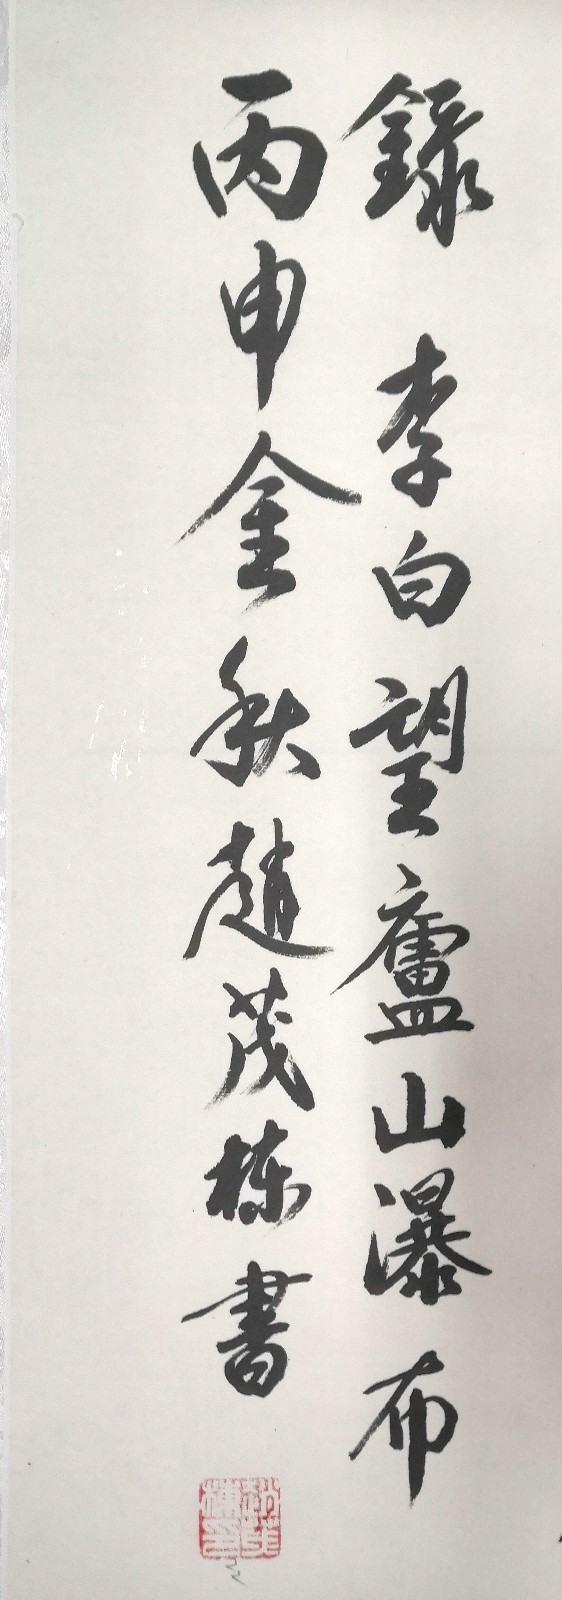 錄 李白望廬山瀑布
丙申金秋趙茂棟書
趙茂棟印